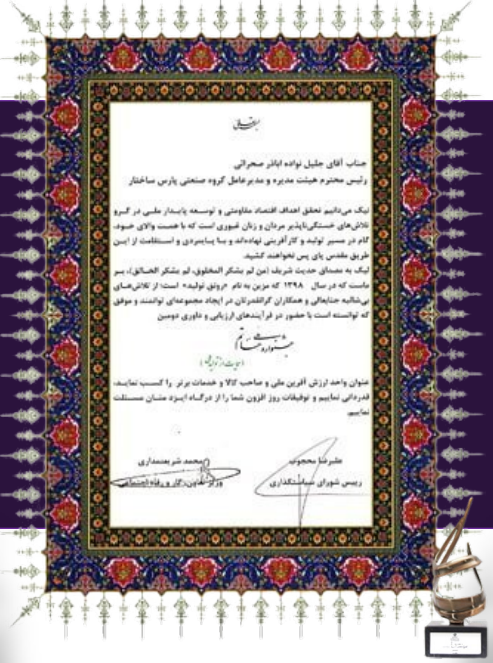 بسمه تعالی
جناب آقای جلیل نواده اباذر صحرائی
رئیس محترم هیئت مدیره و مدیرعامل گروه صنعتی پارس ساختار
نیک می‌دانیم تحقق اهداف اقتصاد مقاومتی و توسعه پایدار ملی در گرو
تلاش‌های خستگی‌ناپذیر مردان و زنان غیوری است که با همت والای خود،
گام در مسیر تولید و کارآفرینی نهاده‌اند و با پایمردی و استقامت از این
طریق مقدس پای پس نخواهند کشید.
لیک به مصداق حدیث شریف (من لم یشکر المخلوق، لم یشکر الخالق)، بر
ماست که در سال ۱۳۹۸ که مزین به نام «رونق تولید» است؛ از تلاش‌های
بی‌شائبه جنابعالی و همکاران گرانقدرتان در ایجاد مجموعه‌ای توانمند و موفق
که توانسته است با حضور در فرآیندهای ارزیابی و داوری دومین
جشنواره ملی حاتم
(حمایت از تولید ملی)
عنوان واحد ارزش آفرین ملی و صاحب کالا و خدمات برتر را کسب نماید،
قدردانی نماییم و توفیقات روز افزون شما را از درگاه ایزد منان مسئلت
نماییم.
علیرضا محجوب
رییس شورای سیاستگذاری
محمد شریعتمداری
وزیر تعاون، کار و رفاه اجتماعی